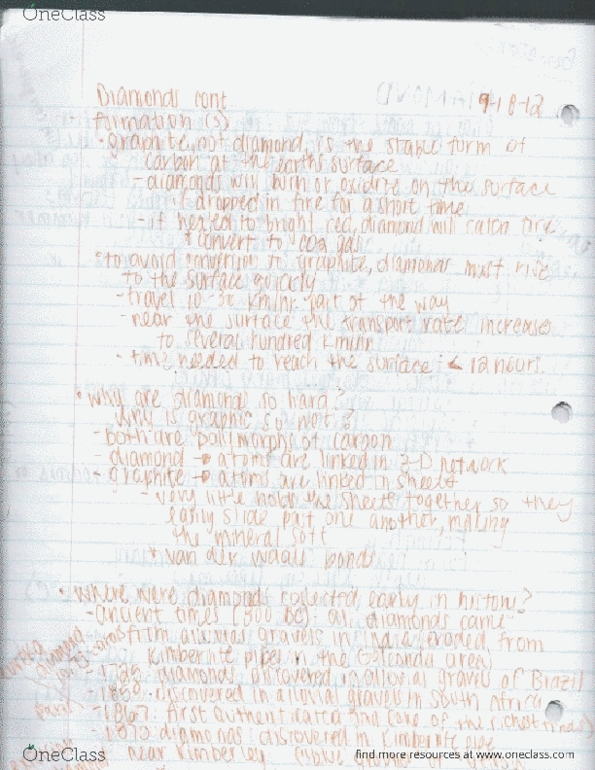 OneClass
Diamonds cont 9-18-12
formation (3)
- graphite, not diamond, is the stable form of
carbon at the earths surface
- diamonds will burn or oxidize on the surface
if dropped in fire for a short time
- if heated to bright red, diamond will catch fire
* convert to CO2 gas
* to avoid conversion to graphite, diamonds must rise
to the surface quickly
- travel 10-30 km/hr part of the way
- near the surface the transport rate increases
to several hundred km/hr
- time needed to reach the surface: < 12 hours.
* why are diamonds so hard?
why is graphite so not?
- both are polymorphs of carbon
- diamond → atoms are linked in 3-D network
- graphite → atoms are linked in sheets
- very little holds the sheets together so they
easily slide past one another, making
the mineral soft
* van der waals bonds
* where were diamonds collected early in history?
- ancient times (300 BC): all diamonds came
from alluvial gravels in India (eroded from
kimberlite pipes in the Golconda area)
- 1725: diamonds discovered in alluvial gravels of Brazil
discovered in alluvial gravels in South Africa
- 1867: first authenticated find (one of the richest finds)
diamonds discovered in kimberlite pipe
near Kimberley
OneClass
find more resources at www.oneclass.com